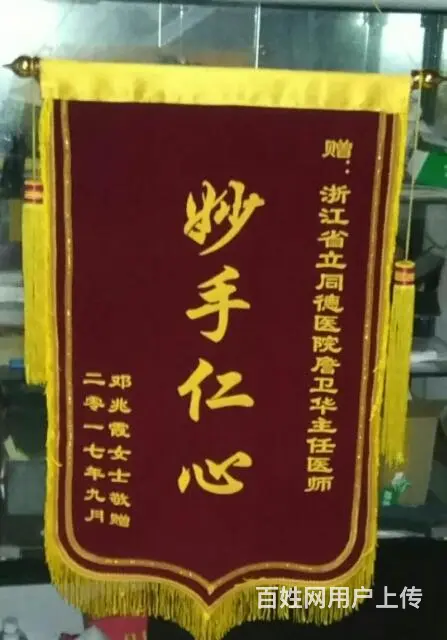 赠：浙江省立同德医院詹卫华主任医师
妙手仁心
邓兆霞女士敬赠
二零一七年九月
百姓网用户上传